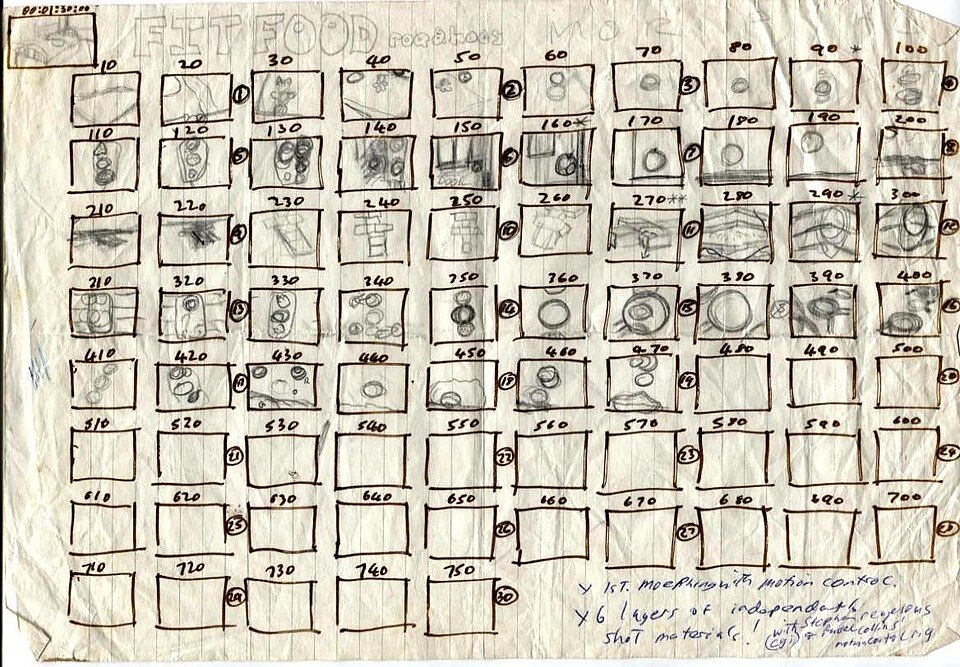 00:01:30:00
FIT FOOD
10 20 30 40 50 60 70 80 90 * 100
1 2 3 4
110 120 130 140 150 160* 170 180 190 200
5 6 7 8
210 220 230 240 250 260 270** 280 290* 300
9 10 11 12
210 320 330 340 350 360 370 380 390 400
13 14 15 16
410 420 430 440 450 460 470 480 490 500
17 18 19 20
510 520 530 540 550 560 570 580 590 600
21 22 23 24
610 620 630 640 650 660 670 680 690 700
25 26 27 28
710 720 730 740 750
29 30
1st. Morphing with motion control.
6 layers of independently
shot materials! with Stephen
(CGI) & Collins'
motion control rig